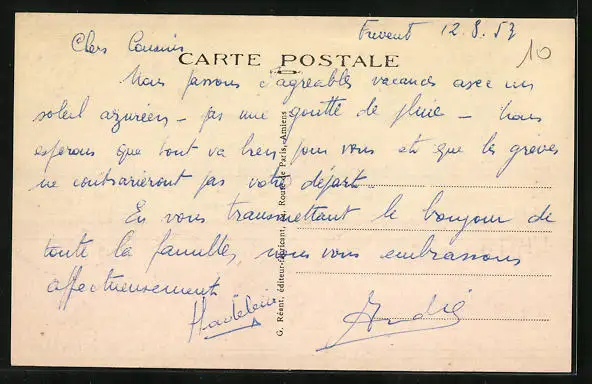 Frévent 12.8.53
10
Chers Cousins
CARTE POSTALE
Nous passons d'agréables vacances avec un
soleil azuréen - pas une goutte de pluie - Nous
espérons que tout va bien pour vous et que les grèves
ne contrarieront pas votre départ.
En vous transmettant le bonjour de
toute la famille, nous vous embrassons
affectueusement
André
G. Réant, éditeur-fabricant, Route de Paris, Amiens